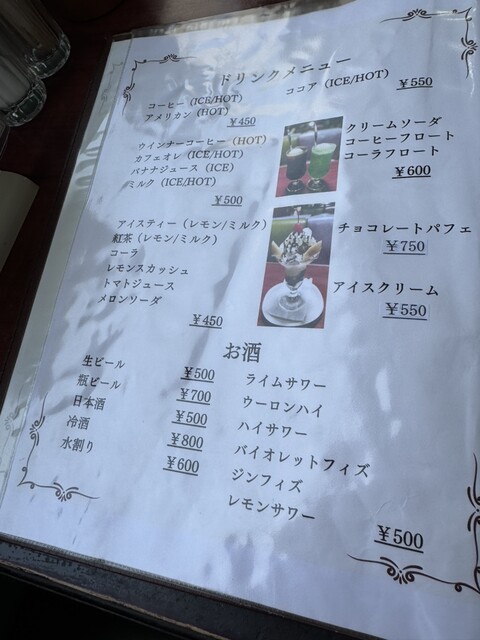 ドリンクメニュー
コーヒー（ICE/HOT）
アメリカン（HOT）
￥450
ココア（ICE/HOT）
￥550
ウインナーコーヒー（HOT）
カフェオレ（ICE/HOT）
バナナジュース（ICE）
ミルク（ICE/HOT）
￥500
クリームソーダ
コーヒーフロート
コーラフロート
￥600
アイスティー（レモン/ミルク）
紅茶（レモン/ミルク）
コーラ
レモンスカッシュ
トマトジュース
メロンソーダ
￥450
チョコレートパフェ
￥750
アイスクリーム
￥550
お酒
生ビール ￥500
瓶ビール ￥700
日本酒 ￥500
冷酒 ￥800
水割り ￥600
ライムサワー
ウーロンハイ
ハイサワー
バイオレットフィズ
ジンフィズ
レモンサワー
￥500